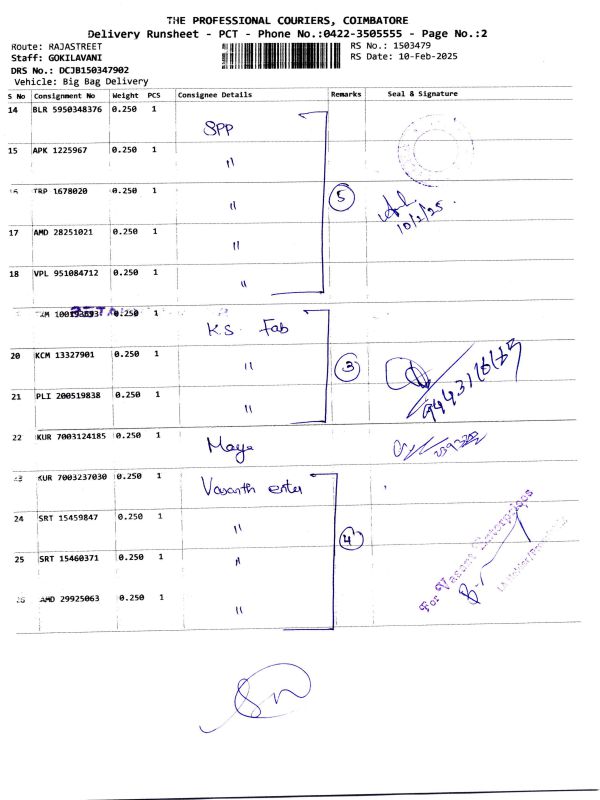 THE PROFESSIONAL COURIERS, COIMBATORE
Delivery Runsheet - PCT - Phone No.:0422-3505555 - Page No.:2
Route: RAJASTREET
RS No.: 1503479
Staff: GOKILAVANI
RS Date: 10-Feb-2025
DRS No.: DCJB150347902
Vehicle: Big Bag Delivery
S No Consignment No Weight PCS Consignee Details Remarks Seal & Signature
14 BLR 5950348376 0.250 1 SPP
15 APK 1225967 0.250 1 "
16 TRP 1678020 0.250 1 " 5
10/2/25
17 AMD 28251021 0.250 1 "
18 VPL 951084712 0.250 1 "
0.250 1 K.S. Fab
20 KCM 13327901 0.250 1 " 3
21 PLI 200519838 0.250 1 "
22 KUR 7003124185 0.250 1 Maya
23 KUR 7003237030 0.250 1 Vasanth enter
24 SRT 15459847 0.250 1 " 4
25 SRT 15460371 0.250 1 "
26 AMD 29925063 0.250 1 "
For Vasant Enterprises